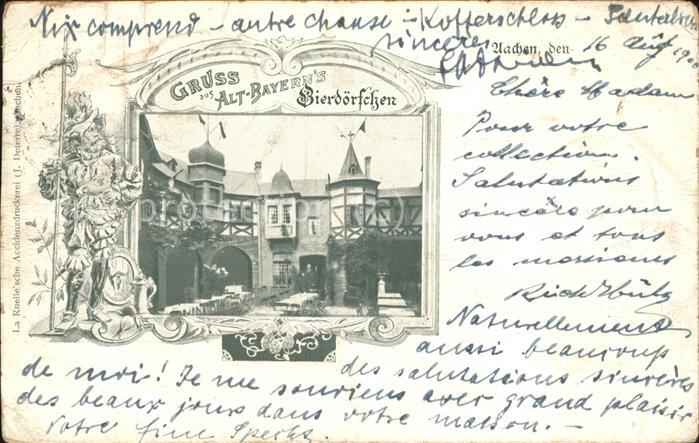 Nix comprend – autre chause – Kofferschloss –
sincères
Aachen, den 16 Aug 1900
GRUSS
aus ALT-BAYERN'S
Bierdörfchen
La Ruelle'sche Accidenzdruckerei (J. Deterre), Aachen.
Chère Madam
Pour votre
collection.
Salutations
sincère pour
vous et tous
les messieurs
Naturellement
aussi beaucoup
de moi! des salutations sincères
Je me souviens avec grand plaisir
des beaux jours dans votre maison. –
Votre Fine Specht.